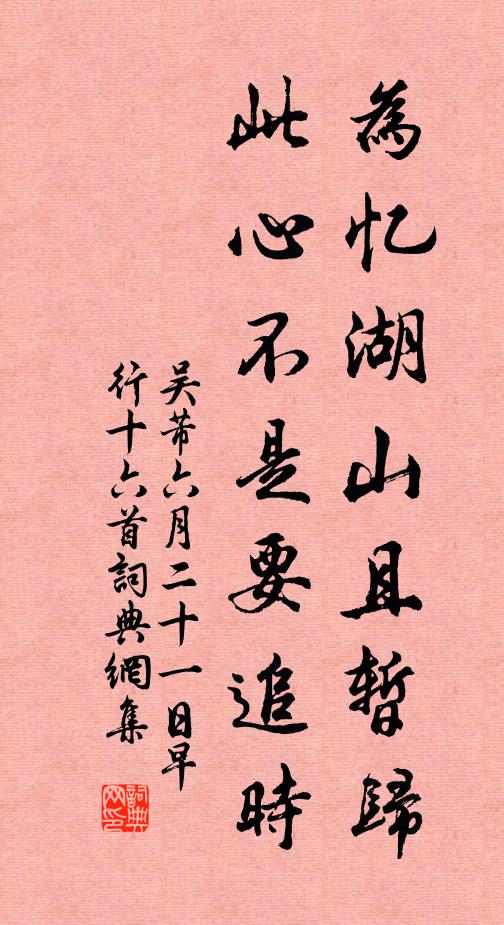 為忆湖山且暫歸
此心不是要追時
吴芾六月二十一日早
行十六首詞典網集
詞典网印